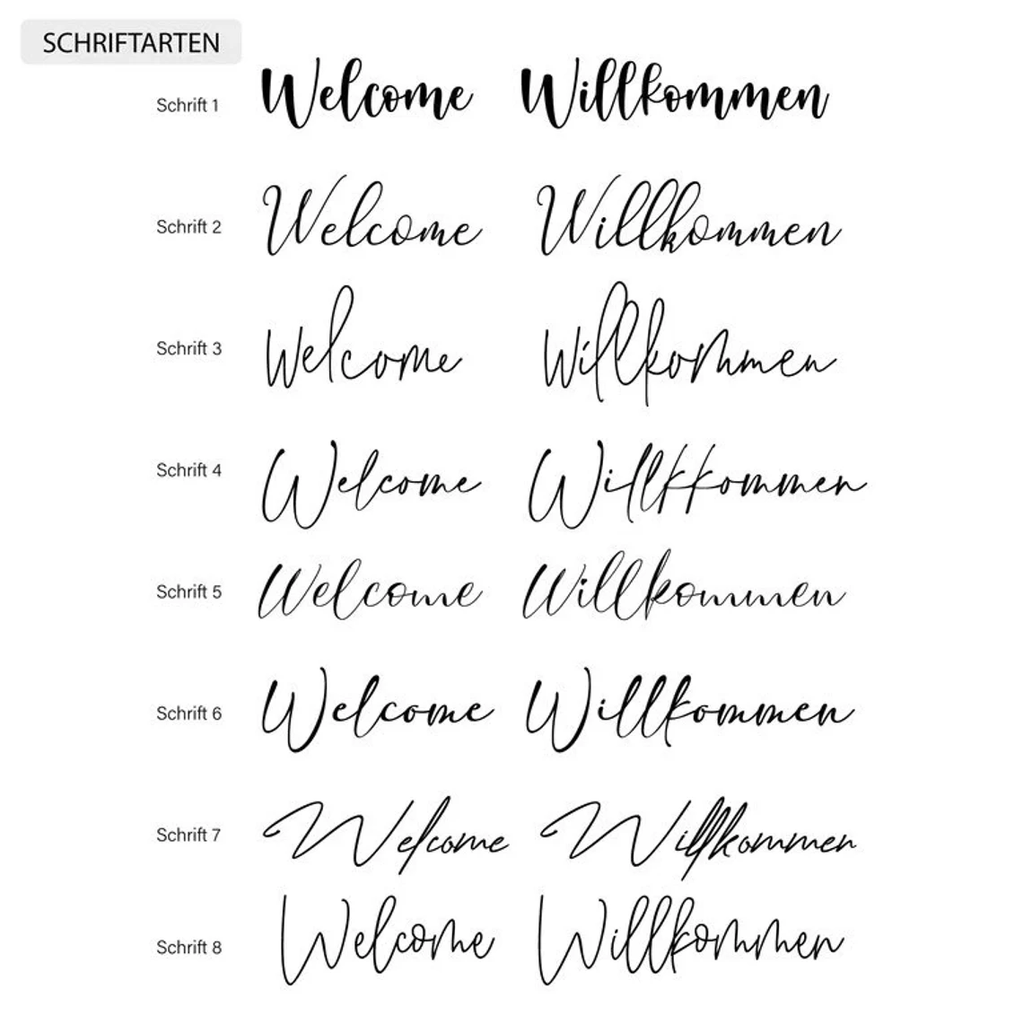 SCHRIFTARTEN
Schrift 1 Welcome Willkommen
Schrift 2 Welcome Willkommen
Schrift 3 Welcome Willkommen
Schrift 4 Welcome Willkkommen
Schrift 5 Welcome Willkommen
Schrift 6 Welcome Willkommen
Schrift 7 Welcome Willkommen
Schrift 8 Welcome Willkommen